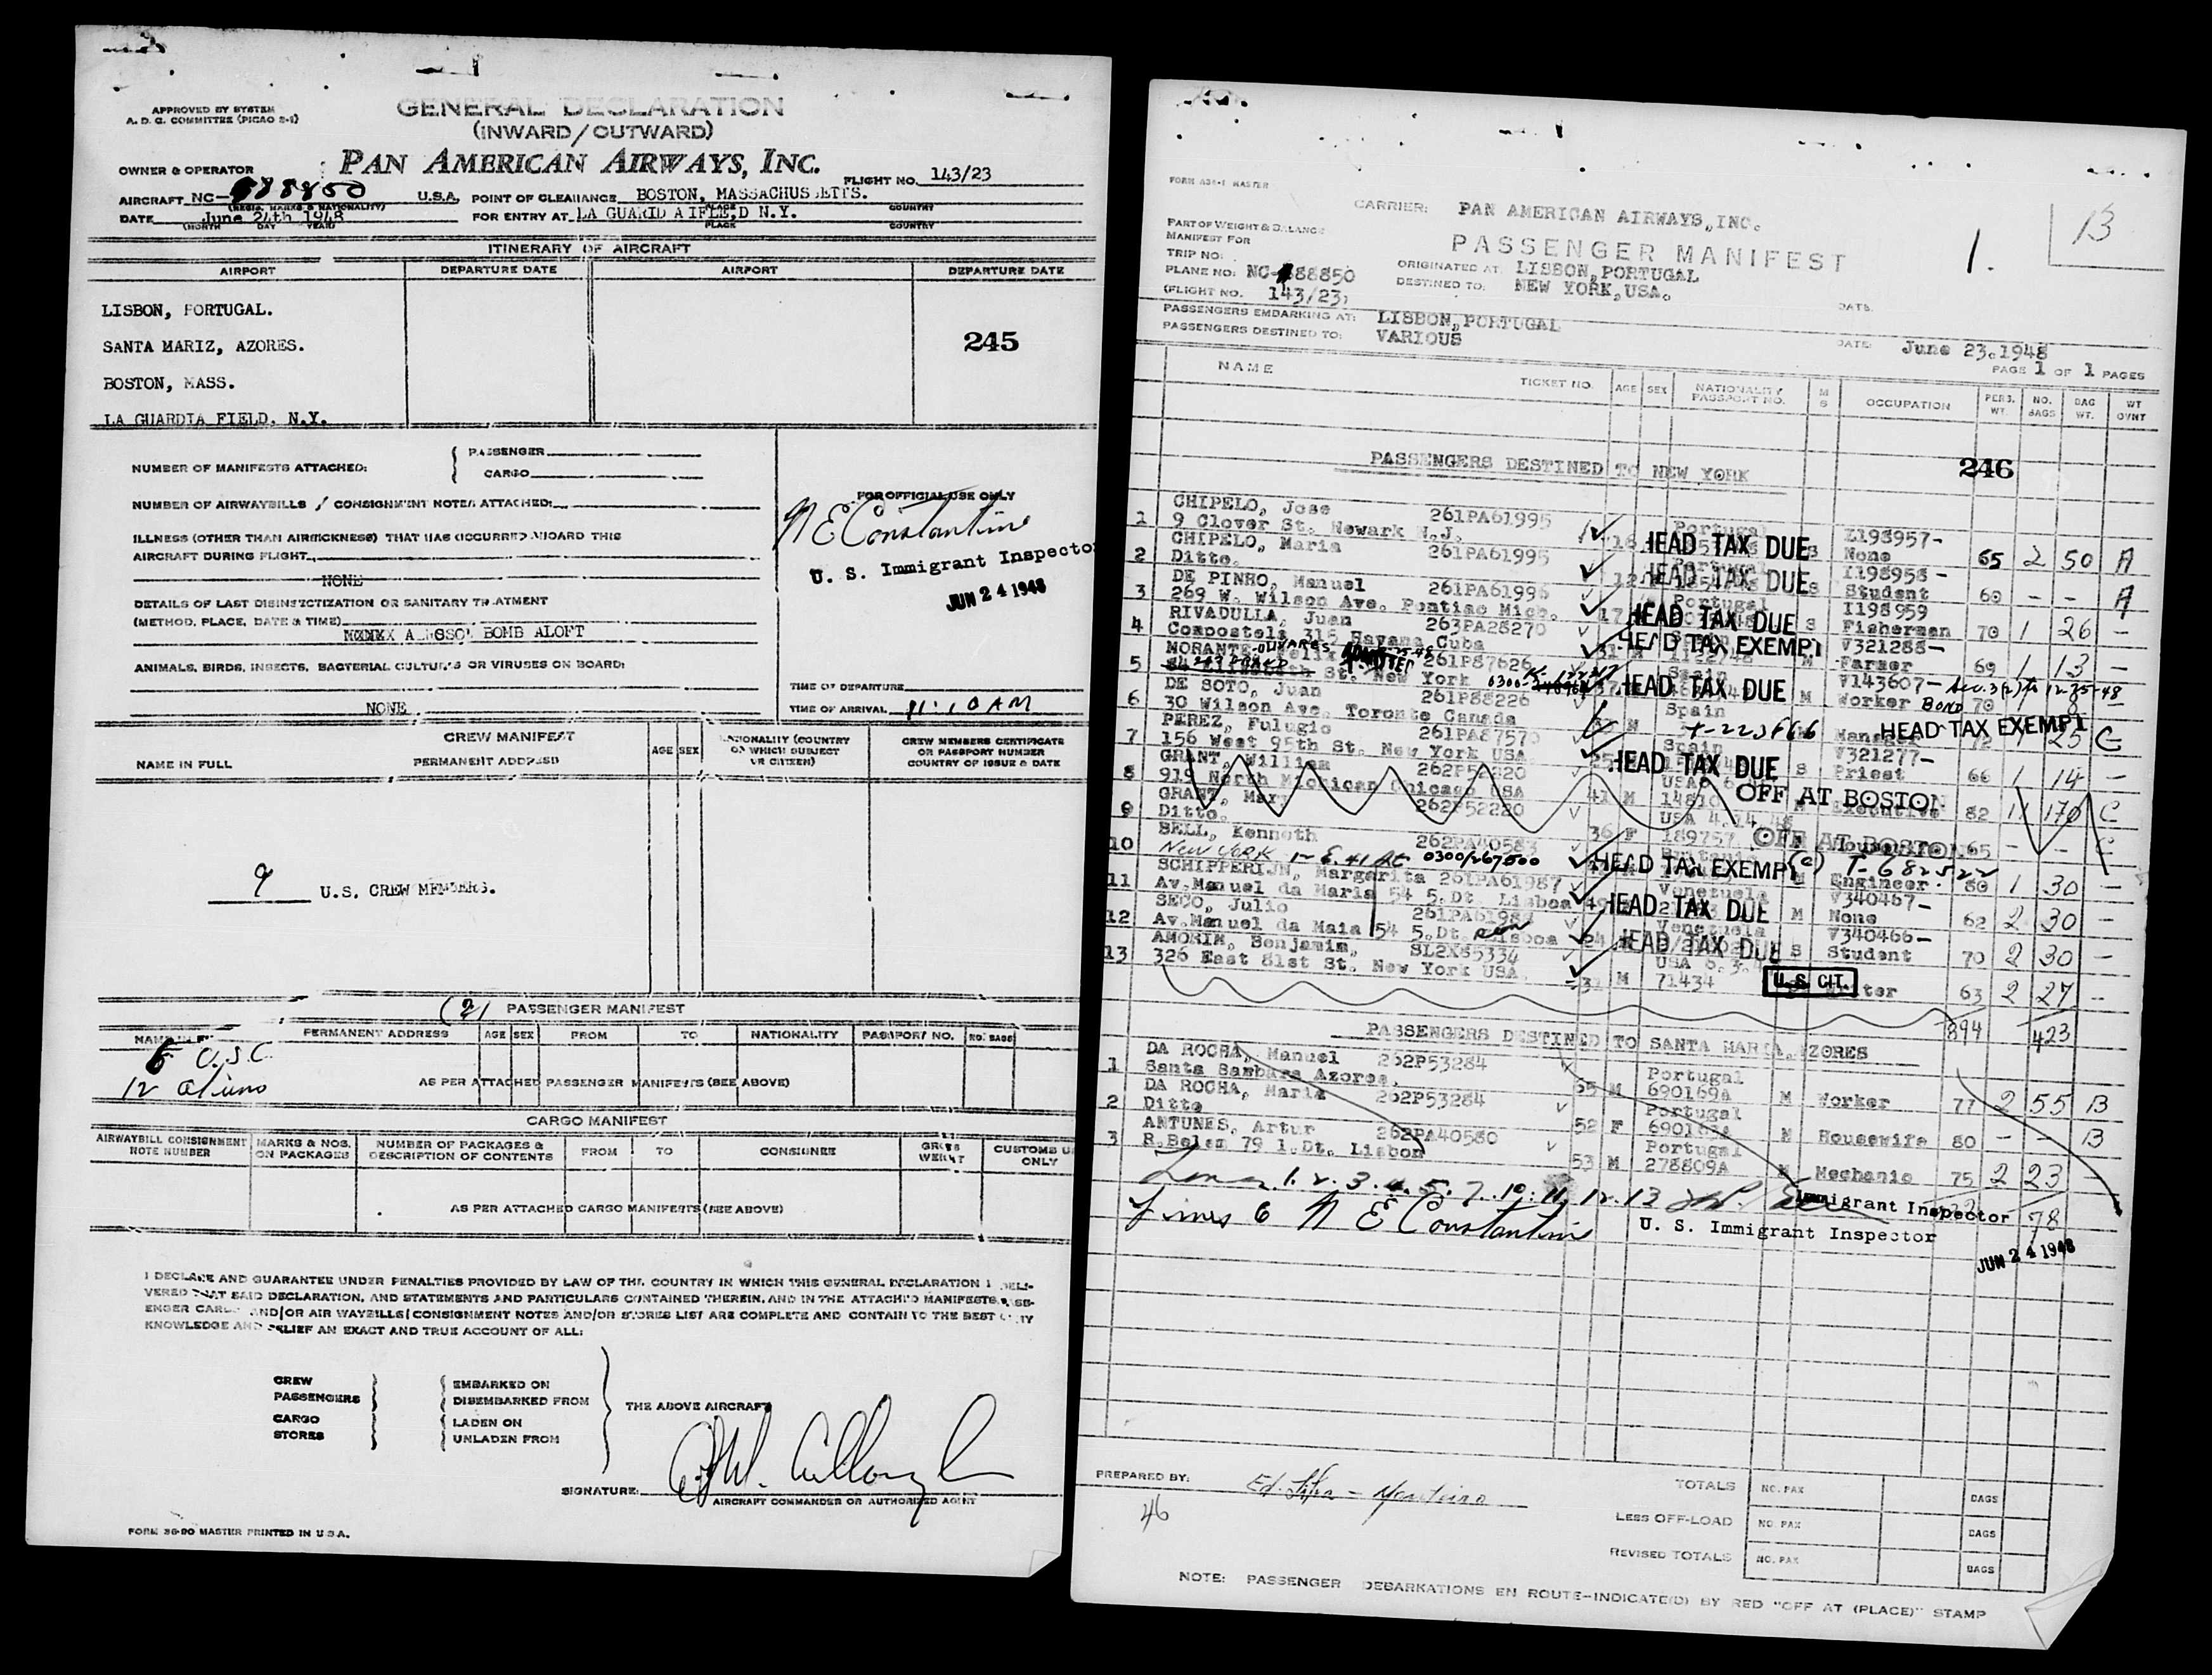 APPROVED BY SYSTEM
A. D. C. COMMITTEE (PICAO 2-1)
GENERAL DECLARATION
(INWARD/OUTWARD)
OWNER & OPERATOR
PAN AMERICAN AIRWAYS, INC.
FLIGHT NO. 143/23
AIRCRAFT NC-88850
(REGIS. MARKS & NATIONALITY)
U.S.A. POINT OF CLEARANCE BOSTON, MASSACHUSETTS.
PLACE COUNTRY
DATE June 24th 1948
(MONTH DAY YEAR)
FOR ENTRY AT LA GUARID A IFLE;D N.Y.
PLACE COUNTRY
ITINERARY OF AIRCRAFT
AIRPORT DEPARTURE DATE AIRPORT DEPARTURE DATE
LISBON, PORTUGAL.
245
SANTA MARIZ, AZORES.
BOSTON, MASS.
LA GUARDIA FIELD. N.Y.
NUMBER OF MANIFESTS ATTACHED:
PASSENGER
CARGO
NUMBER OF AIRWAYBILLS / CONSIGNMENT NOTES ATTACHED:
FOR OFFICIAL USE ONLY
N E Constantine
U. S. Immigrant Inspector
JUN 24 1948
ILLNESS (OTHER THAN AIRSICKNESS) THAT HAS OCCURRED ABOARD THIS
AIRCRAFT DURING FLIGHT.
NONE
DETAILS OF LAST DISINSECTIZATION OR SANITARY TREATMENT
(METHOD, PLACE, DATE & TIME)
BOMB ALOFT
ANIMALS, BIRDS, INSECTS, BACTERIAL CULTURES OR VIRUSES ON BOARD:
NONE
TIME OF DEPARTURE
TIME OF ARRIVAL 11:10 AM
CREW MANIFEST
NAME IN FULL
PERMANENT ADDRESS
AGE SEX
NATIONALITY (COUNTRY
OF WHICH SUBJECT
OR CITIZEN)
CREW MEMBERS CERTIFICATE
OR PASSPORT NUMBER
COUNTRY OF ISSUE & DATE
9 U.S. CREW MEMBERS.
(2) PASSENGER MANIFEST
PERMANENT ADDRESS AGE SEX FROM TO NATIONALITY PASSPORT NO. NO. BAGS
U.S.C.
12 aliens
AS PER ATTACHED PASSENGER MANIFESTS (SEE ABOVE)
CARGO MANIFEST
AIRWAYBILL CONSIGNMENT
NOTE NUMBER
MARKS & NOS.
ON PACKAGES
NUMBER OF PACKAGES &
DESCRIPTION OF CONTENTS
FROM
TO
CONSIGNEE
GROSS
WEIGHT
CUSTOMS U
ONLY
AS PER ATTACHED CARGO MANIFESTS (SEE ABOVE)
I DECLARE AND GUARANTEE UNDER PENALTIES PROVIDED BY LAW OF THE COUNTRY IN WHICH THIS GENERAL DECLARATION I DELI-
VERED THAT SAID DECLARATION, AND STATEMENTS AND PARTICULARS CONTAINED THEREIN, AND IN THE ATTACHED MANIFESTS, PASS-
ENGER CARGO AND/OR AIR WAYBILLS/CONSIGNMENT NOTES AND/OR STORES LIST ARE COMPLETE AND CONTAIN TO THE BEST OF MY
KNOWLEDGE AND BELIEF AN EXACT AND TRUE ACCOUNT OF ALL:
CREW
PASSENGERS
CARGO
STORES
EMBARKED ON
DISEMBARKED FROM
LADEN ON
UNLADEN FROM
THE ABOVE AIRCRAFT
SIGNATURE:
AIRCRAFT COMMANDER OR AUTHORIZED AGENT
FORM 36-90 MASTER PRINTED IN U S A.
13
1.
CARRIER: PAN AMERICAN AIRWAYS, INC.
PART OF WEIGHT & BALANCE
MANIFEST FOR
PASSENGER MANIFEST
TRIP NO:
PLANE NO: NC-88850
ORIGINATED AT LISBON, PORTUGAL
(FLIGHT NO. 143/23)
DESTINED TO: NEW YORK, USA.
DATE
PASSENGERS EMBARKING AT: LISBON, PORTUGAL
PASSENGERS DESTINED TO: VARIOUS
DATE: June 23.1948
PAGE 1 OF 1 PAGES
NAME TICKET NO. AGE SEX NATIONALITY PASSPORT NO. M S OCCUPATION PERS. WT. NO. BAGS BAG WT. WT OVNT
PASSENGERS DESTINED TO NEW YORK
246
CHIPELO, Jose 261PA61995 Portugal Z198957-
1 9 Clover St. Newark N.J. HEAD TAX DUE None 65 2 50 A
CHIPELO, Maria 261PA61995 Portugal I198958-
2 Ditto. 12 HEAD TAX DUE S Student 60 - - A
DE PINHO, Manuel 261PA61996 Portugal I198959
3 269 W. Wilson Ave. Pontiac Mich. 17 HEAD TAX DUE S Fisherman 70 1 26 -
RIVADULLA, Juan 263PA28270 V321288-
4 Compostela 315 Havana Cuba HEAD TAX EXEMPT M Farmer 69 1 13 -
MORANTE, Felix 261P87626 Spain V143607-
5 St. New York HEAD TAX DUE M Worker BOND 70
DE SOTO, Juan 261P88226 Spain
6 30 Wilson Ave. Toronto Canada M Manager HEAD TAX EXEMPT 25 C
PEREZ, Fulugio 261PA87570 Spain V321277-
7 156 West 95th St. New York USA HEAD TAX DUE S Priest 66 1 14 -
GRANT, William 262P52220
8 919 North Michican Chicago USA 41 M OFF AT BOSTON Executive 82 11 170 C
GRANT, Mary 262P52220 USA
9 Ditto. 36 F 189757 OFF AT BOSTON 65 - - C
SELL, Kenneth 262PA40583
10 New York 0300/267500 HEAD TAX EXEMPT (e) T-682522 Engineer 80 1 30 -
SCHIPPERIJN, Margarita 261PA61987 Venezuela V340467-
11 Av. Manuel da Maria 54 5.Dt. Lisboa 49 HEAD TAX DUE M None 62 2 30 -
SECO, Julio Venezuela V340466-
12 Av. Manuel da Maia 54 5.Dt. Lisboa HEAD TAX DUE S Student 70 2 30 -
AMORIM, Benjamin, SL2X85334 USA
13 326 East 81st St. New York USA. 31 M 71434 U.S CIT. 63 2 27 -
894 423
PASSENGERS DESTINED TO SANTA MARIA, AZORES
DA ROCHA, Manuel 262P53284 Portugal
1 Santa Sambara Azores. 65 M 690169A M Worker 77 2 55 B
DA ROCHA, Maria 262P53284 Portugal
2 Ditto 52 F M Housewife 80 - - B
ANTUNES, Artur 262PA40580 Portugal
3 R.Belem 79 1.Dt. Lisbon 53 M 278809A M Mechanic 75 2 23 -
78
1. 2. 3. 4. 5. 7. 10. 11. 12. 13
Immigrant Inspector
Lines 6 N E Constantine
U. S. Immigrant Inspector
JUN 24 1948
PREPARED BY:
46
TOTALS NO. PAX BAGS
LESS OFF-LOAD NO. PAX BAGS
REVISED TOTALS NO. PAX BAGS
NOTE: PASSENGER DEBARKATIONS EN ROUTE-INDICATE(D) BY RED "OFF AT (PLACE)" STAMP